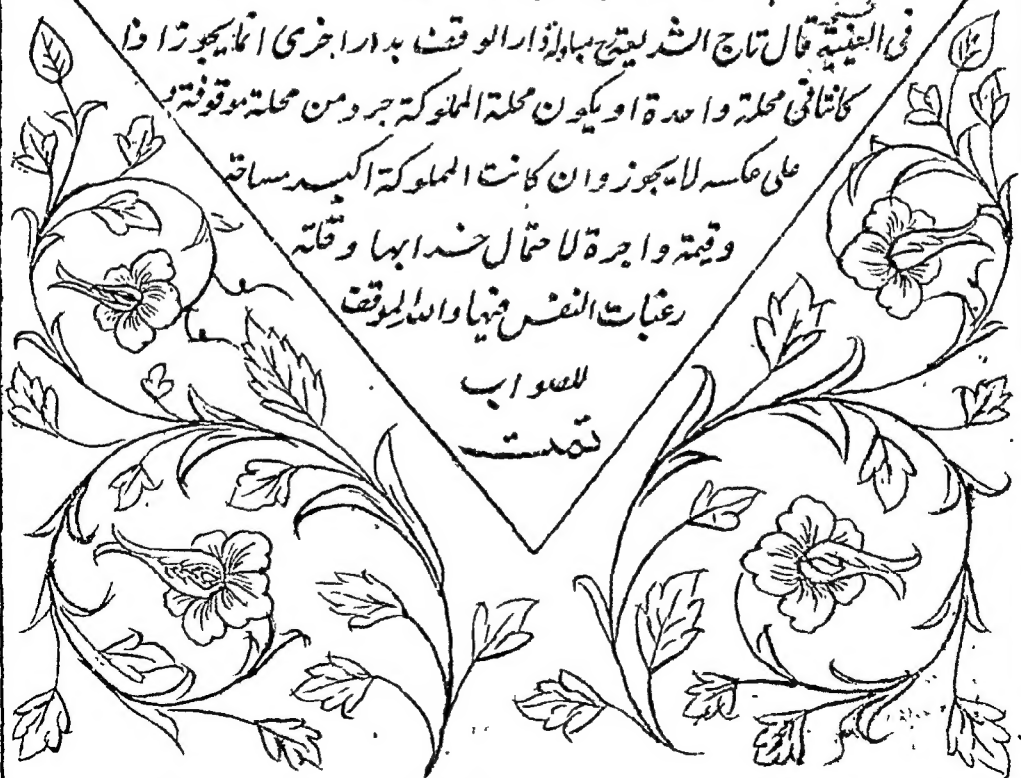 فى القنية قال تاج الشريعة ح مبادلة دار الوقف بدار اخرى انما يجوز اذا
كانتا فى محلة واحدة او يكون محلة المملوكة جرد من محلة موقوفة
على عكسه لا يجوز وان كانت المملوكة اكبر مساحة
وقيمة واجرة لاحتمال خرابها وقلته
رغبات النفس فيها والله الموفق
للصواب
تمت